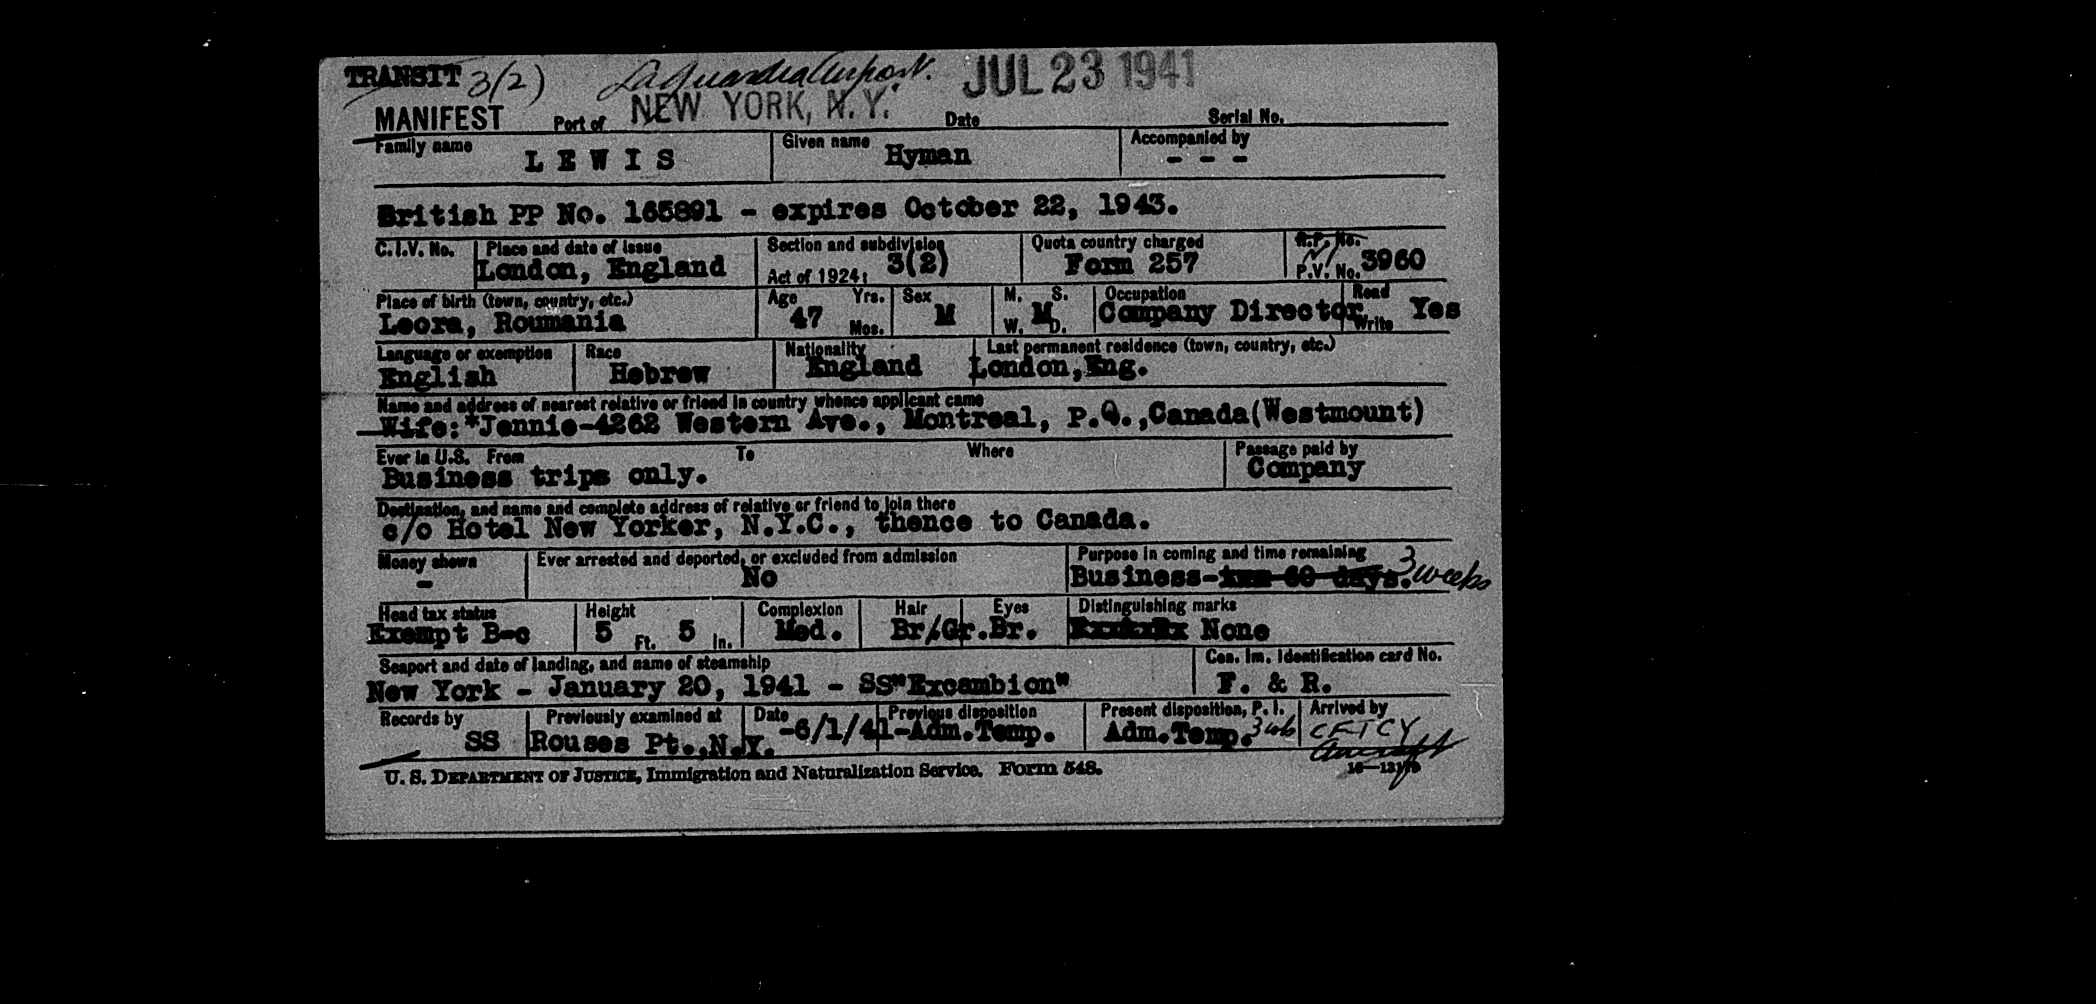 TRANSIT 3(2) LaGuardia Airport. JUL 23 1941
MANIFEST Port of NEW YORK, N.Y. Date Serial No.
Family name LEWIS Given name Hyman Accompanied by - - -
British PP No. 165891 - expires October 22, 1943.
C.I.V. No. Place and date of issue Section and subdivision Quota country charged R.P. No.
London, England Act of 1924: 3(2) Form 257 P.V. No. 3960
Place of birth (town, country, etc.) Age Yrs. Sex M. S. Occupation Read
Leora, Roumania 47 Mos. M W. M D. Company Director Write Yes
Language or exemption Race Nationality Last permanent residence (town, country, etc.)
English Hebrew England London, Eng.
Name and address of nearest relative or friend in country whence applicant came
Wife:*Jennie-4262 Western Ave., Montreal, P.Q.,Canada(Westmount)
Ever in U.S. From To Where Passage paid by
Business trips only. Company
Destination, and name and complete address of relative or friend to join there
c/o Hotel New Yorker, N.Y.C., thence to Canada.
Money shown Ever arrested and deported, or excluded from admission Purpose in coming and time remaining
- No Business- 60 days. 3 weeks
Head tax status Height Complexion Hair Eyes Distinguishing marks
Exempt B-c 5 Ft. 5 In. Med. Br/Gr. Br. None
Seaport and date of landing, and name of steamship Cen. Im. Identification card No.
New York - January 20, 1941 - SS"Excambion" F. & R.
Records by Previously examined at Date Previous disposition Present disposition, P. I. Arrived by
SS Rouses Pt.,N.Y. -6/1/41-Adm.Temp. Adm.Temp. 3 wk CFTCY
Aircraft
U. S. DEPARTMENT OF JUSTICE, Immigration and Naturalization Service. Form 548.